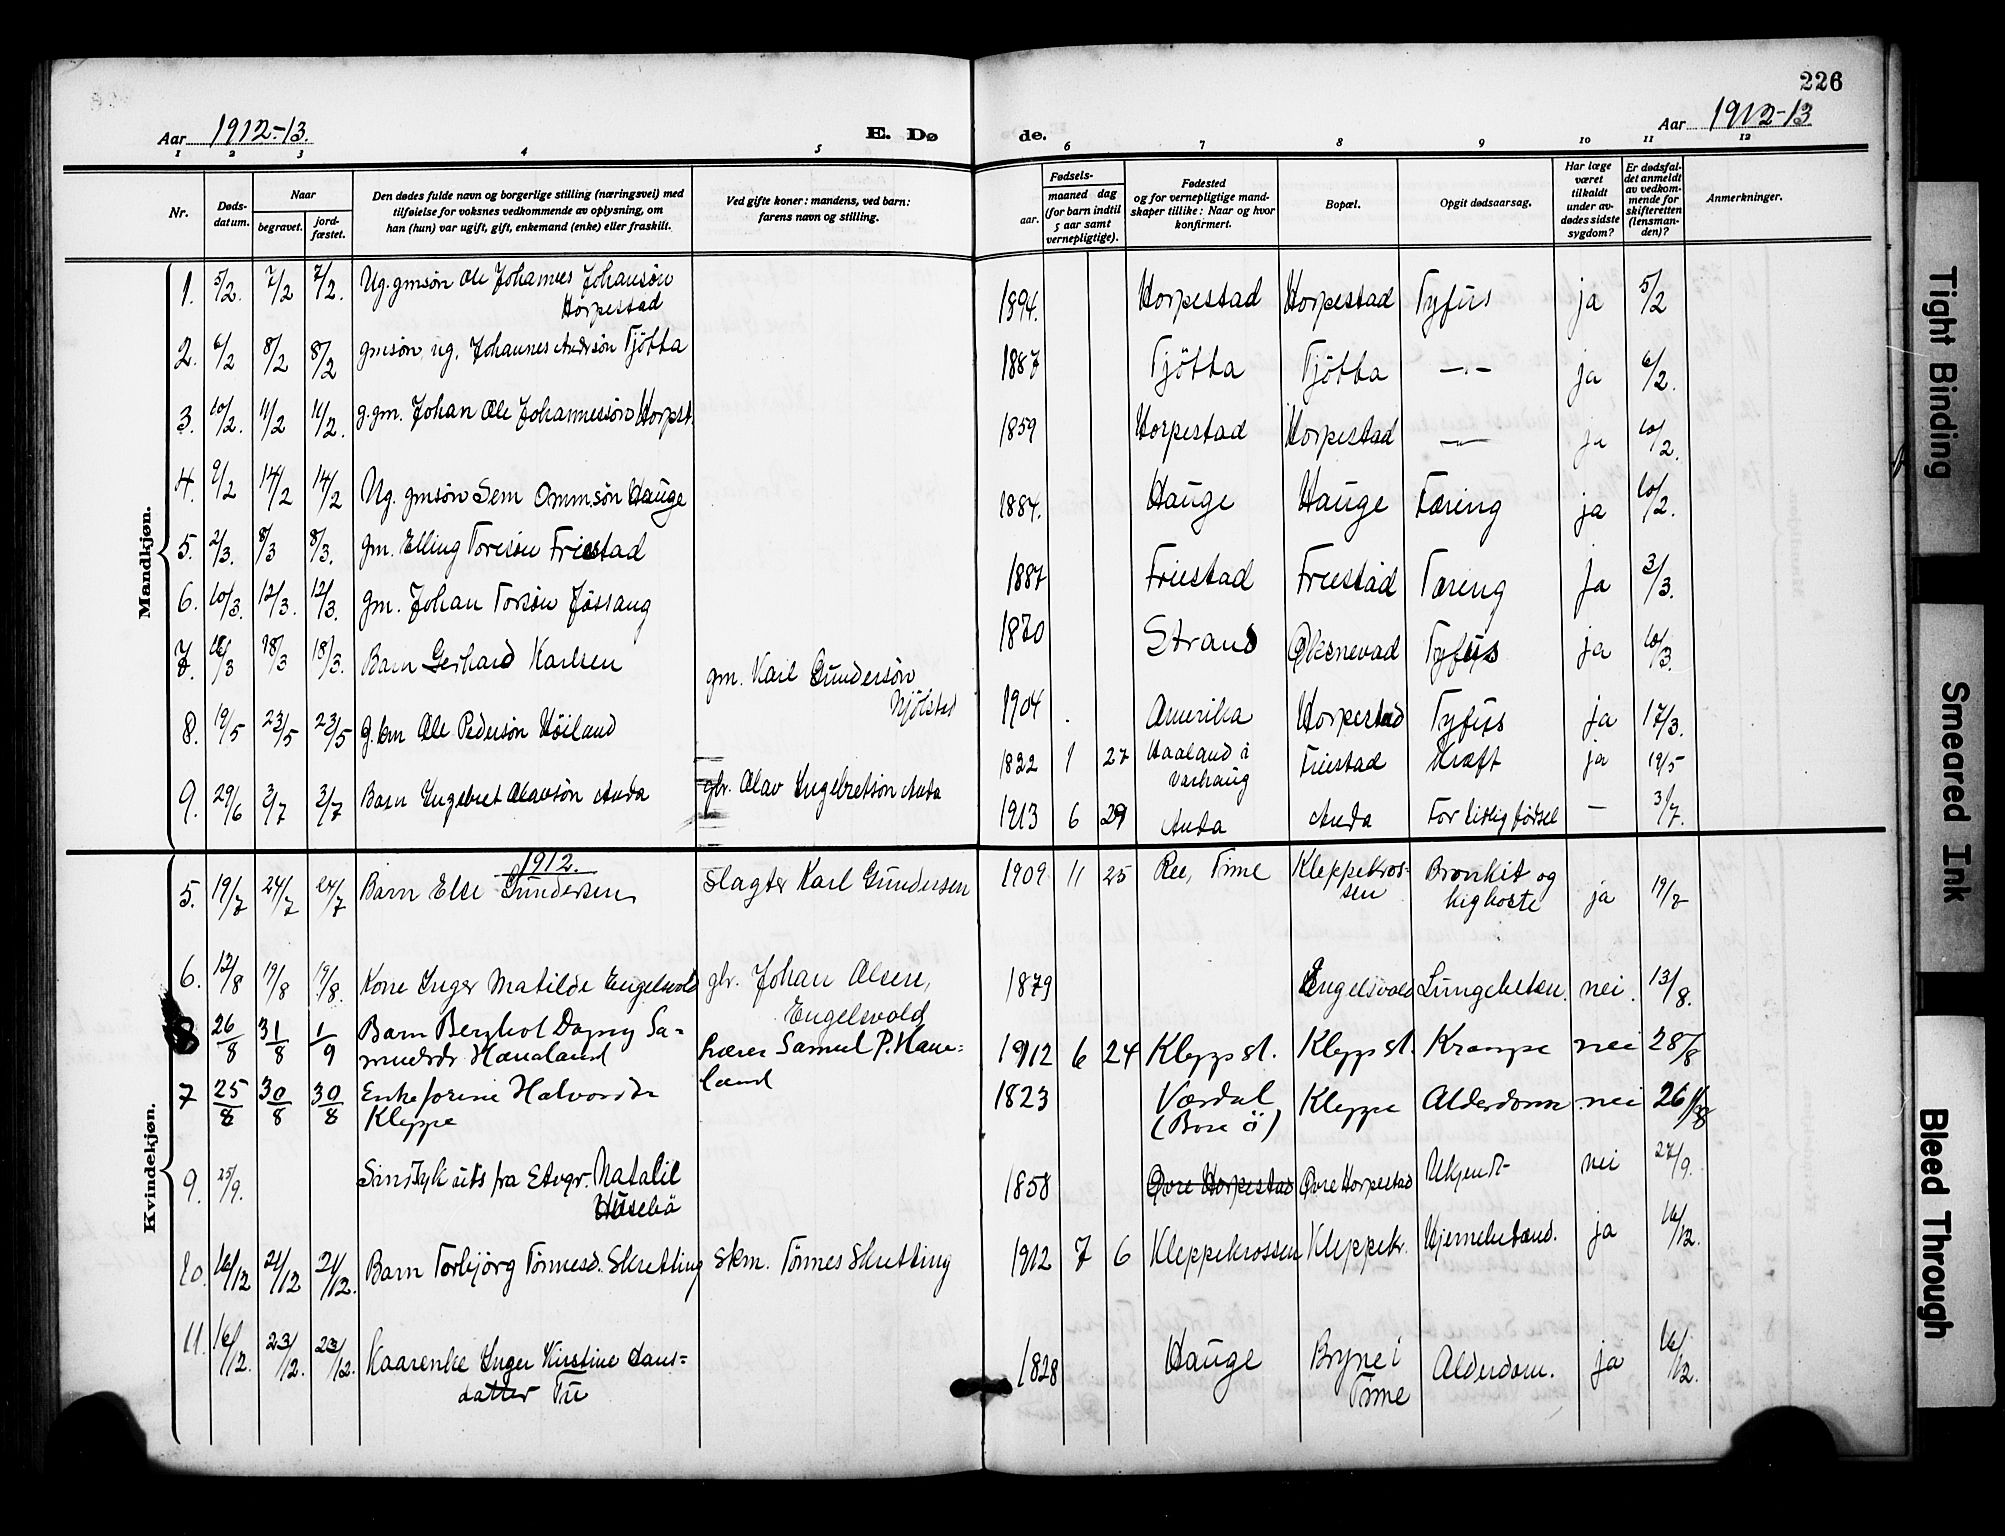 226
Aar 1912-13.
E. Dø
de.
Aar 1912-13
1 2 3 4 5 6 7 8 9 10 11 12
Nr.
Døds-
datum.
Naar
begravet.
jord-
fæstet.
Den dødes fulde navn og borgerlige stilling (næringsvei) med
tilføielse for voksnes vedkommende av oplysning, om
han (hun) var ugift, gift, enkemand (enke) eller fraskilt.
Ved gifte koner: mandens, ved barn:
farens navn og stilling.
Fødsels-
aar.
maaned dag
(for barn indtil
5 aar samt
vernepligtige).
Fødested
og for vernepligtige mand-
skaper tillike: Naar og hvor
konfirmert.
Bopæl.
Opgit dødsaarsag.
Har læge
været
tilkaldt
under av-
dødes sidste
sygdom?
Er dødsfal-
det anmeldt
av vedkom-
mende for
skifteretten
(lensman-
den)?
Anmerkninger.
Mandkjøn.
1. 5/2. 7/2 7/2. Ug. gmsön Ole Johannes Johansön
Horpestad
1894. Horpestad Horpestad Tyfus ja 5/2
2. 6/2 8/2 8/2 gmsön ug. Johannes Andersön Tjötta 1887 Tjötta Tjötta —"— ja 6/2.
3. 10/2. 11/2 11/2. g. gm. Johan Ole Johannessön Horpst. 1859 Horpestad Horpestad —"— ja 10/2.
4. 9/2 14/2 14/2 Ug. gmsön Sem Omm.sön Hauge 1884. Hauge Hauge Tæring ja 10/2.
5. 2/3. 8/3 8/3. gm. Elling Toresön Friestad 1887 Friestad Friestad Tæring ja 3/3.
6. 10/3. 12/3. 12/3. gm. Johan Torsön Jössang 1870 Strand Øksnevad Tyfus ja 10/3.
7. 16/3 18/3 18/3. Barn Gerhard Karlsen gm. Karl Gundersön
Njölstad
1904 Amerika Horpestad Tyfus ja 17/3.
8. 19/5 23/5 23/5 Ole Pedersön Höiland 1822 1 27 Haaland i
Varhaug
Friestad Kræft ja 19/5
9. 29/6 3/7 3/7 Barn Ingebret Olavsön Anda gbr. Olav Ingebretsön Anda 1913 6 29 Anda Anda For tidlig födsel — 3/7.
Kvindekjøn.
1912.
5. 19/7 24/7 24/7 Barn Else Gundersen slagter Karl Gundersen 1909 11 25 Ree, Time Kleppekros-
sen
Bronkit og
kighoste
ja 19/7
6. 12/8 19/8 19/8. Kone Inger Matilde Engelsvold gbr. Johan Olsen,
Engelsvold
1879 Engelsvold Lungebetæn. nei. 13/8.
8 26/8 31/8 1/9 Barn Bergliot Dagny Sa-
muelsdr Hanaland
lærer Samuel P. Hana-
land
1912 6 24 Klepp st. Klepp st. Krampe nei 28/8
7 25/8 30/8 30/8 Enke Jorine Halvorsdtr
Kleppe
1823 Værdal
(Bore s)
Kleppe Alderdom nei 26/8
9. 25/9. Sindssyk fra Natalie
Husebö
1858 Øvre Horpestad Øvre Horpestad Ukjendt nei 27/9.
10. 16/12 21/12 21/12. Barn Torbjörg Tönnesd. Skretting skm. Tönnes Skretting 1912 7 6 Kleppekrossen Kleppekr. Hjernebetænd. ja 16/12.
11. 16/12. 23/12. 23/12. Kaarenke Inger Kirstine Hans-
datter Tu
1828 Hauge Bryne i
Time
Alderdom. ja 16/12.
Tight Binding
Smeared Ink
Bleed Through